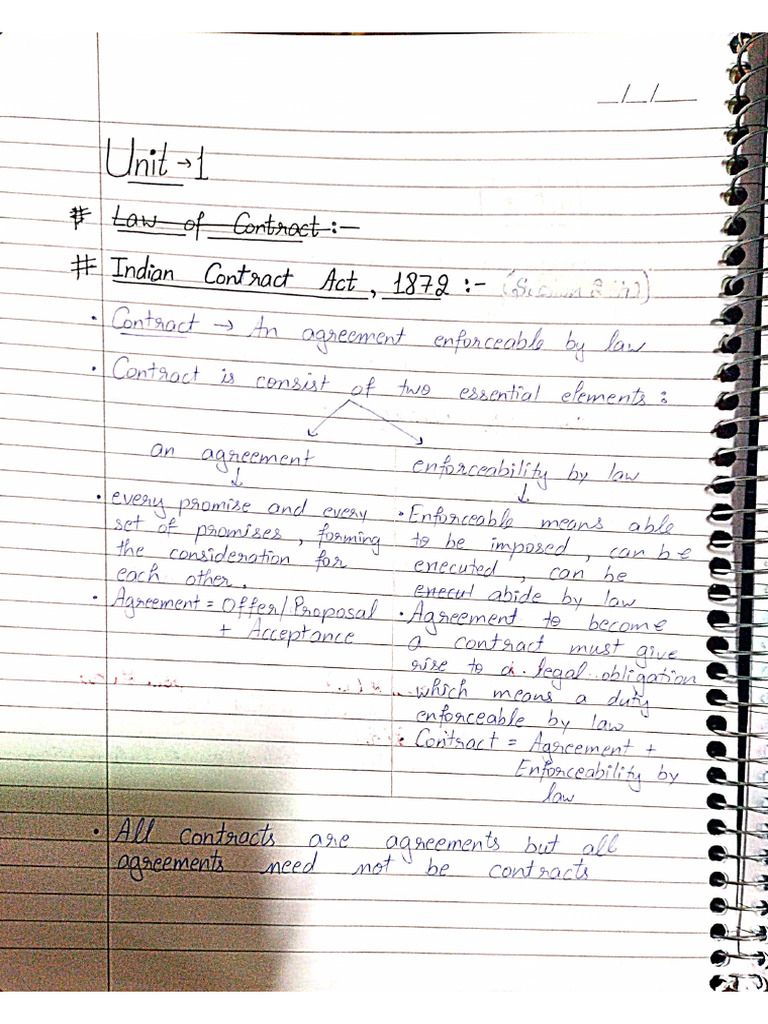 __/__/____
Unit → 1
# Law of Contract :-
# Indian Contract Act, 1872 :-
• Contract → An agreement enforceable by law
• Contract is consist of two essential elements :
an agreement
↓
• every promise and every
set of promises, forming
the consideration for
each other.
• Agreement = Offer/Proposal
+ Acceptance
enforceability by law
↓
• Enforceable means able
to be imposed, can be
executed, can be
execut abide by law
• Agreement to become
a contract must give
rise to a legal obligation
which means a duty
enforceable by law
• Contract = Agreement +
Enforceability by
law
• All contracts are agreements but all
agreements need not be contracts